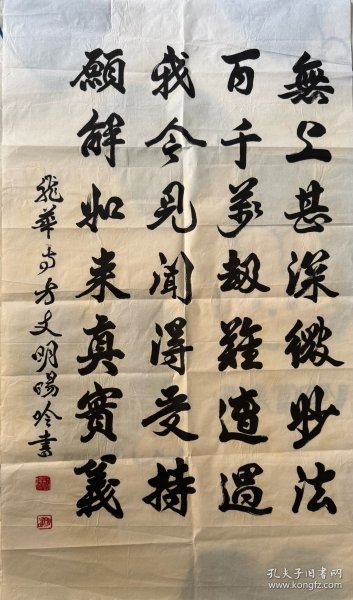 無上甚深微妙法
百千萬劫難遭遇
我今見聞得受持
願解如来真實義
華寺方丈明暘 書
孔夫子旧书网
www.kongfz.com